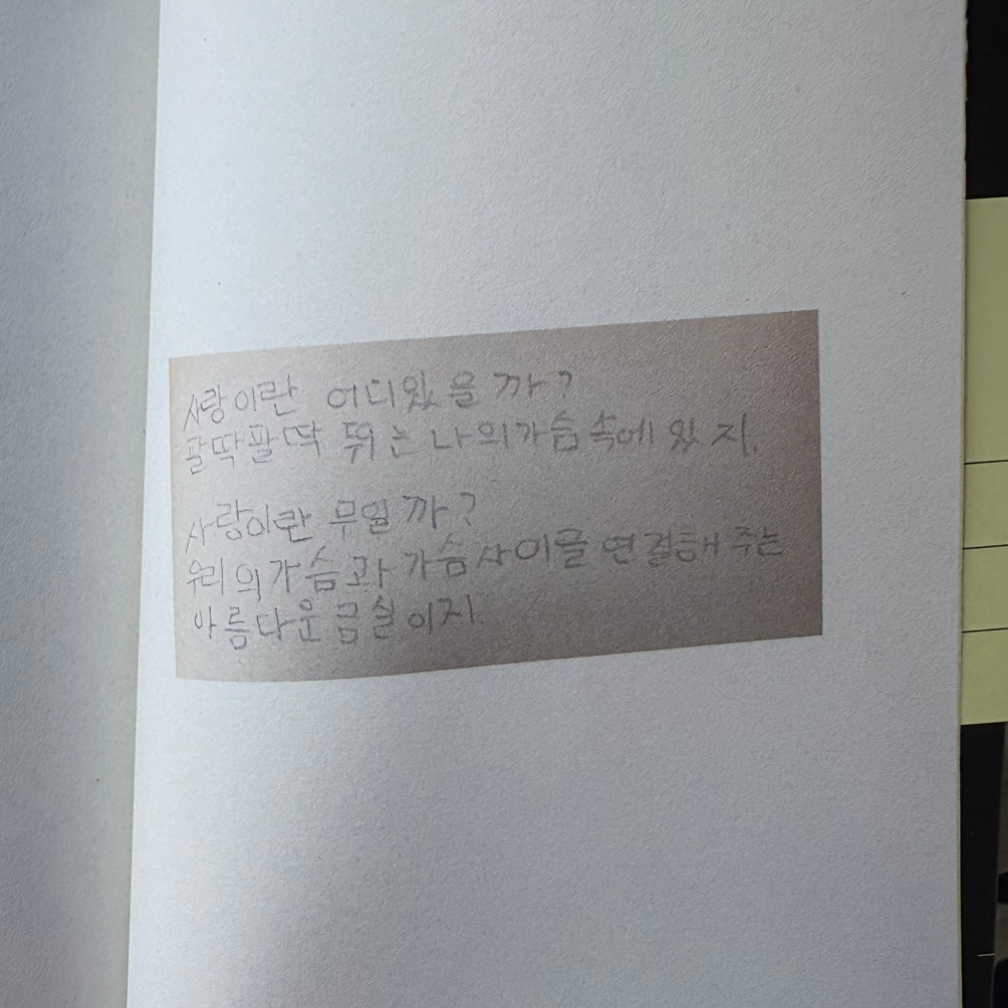 사랑이란 어디있을까?
팔딱팔딱 뛰는 나의가슴속에 있지.
사랑이란 무얼까?
우리의가슴과 가슴사이를 연결해주는
아름다운 금실이지.